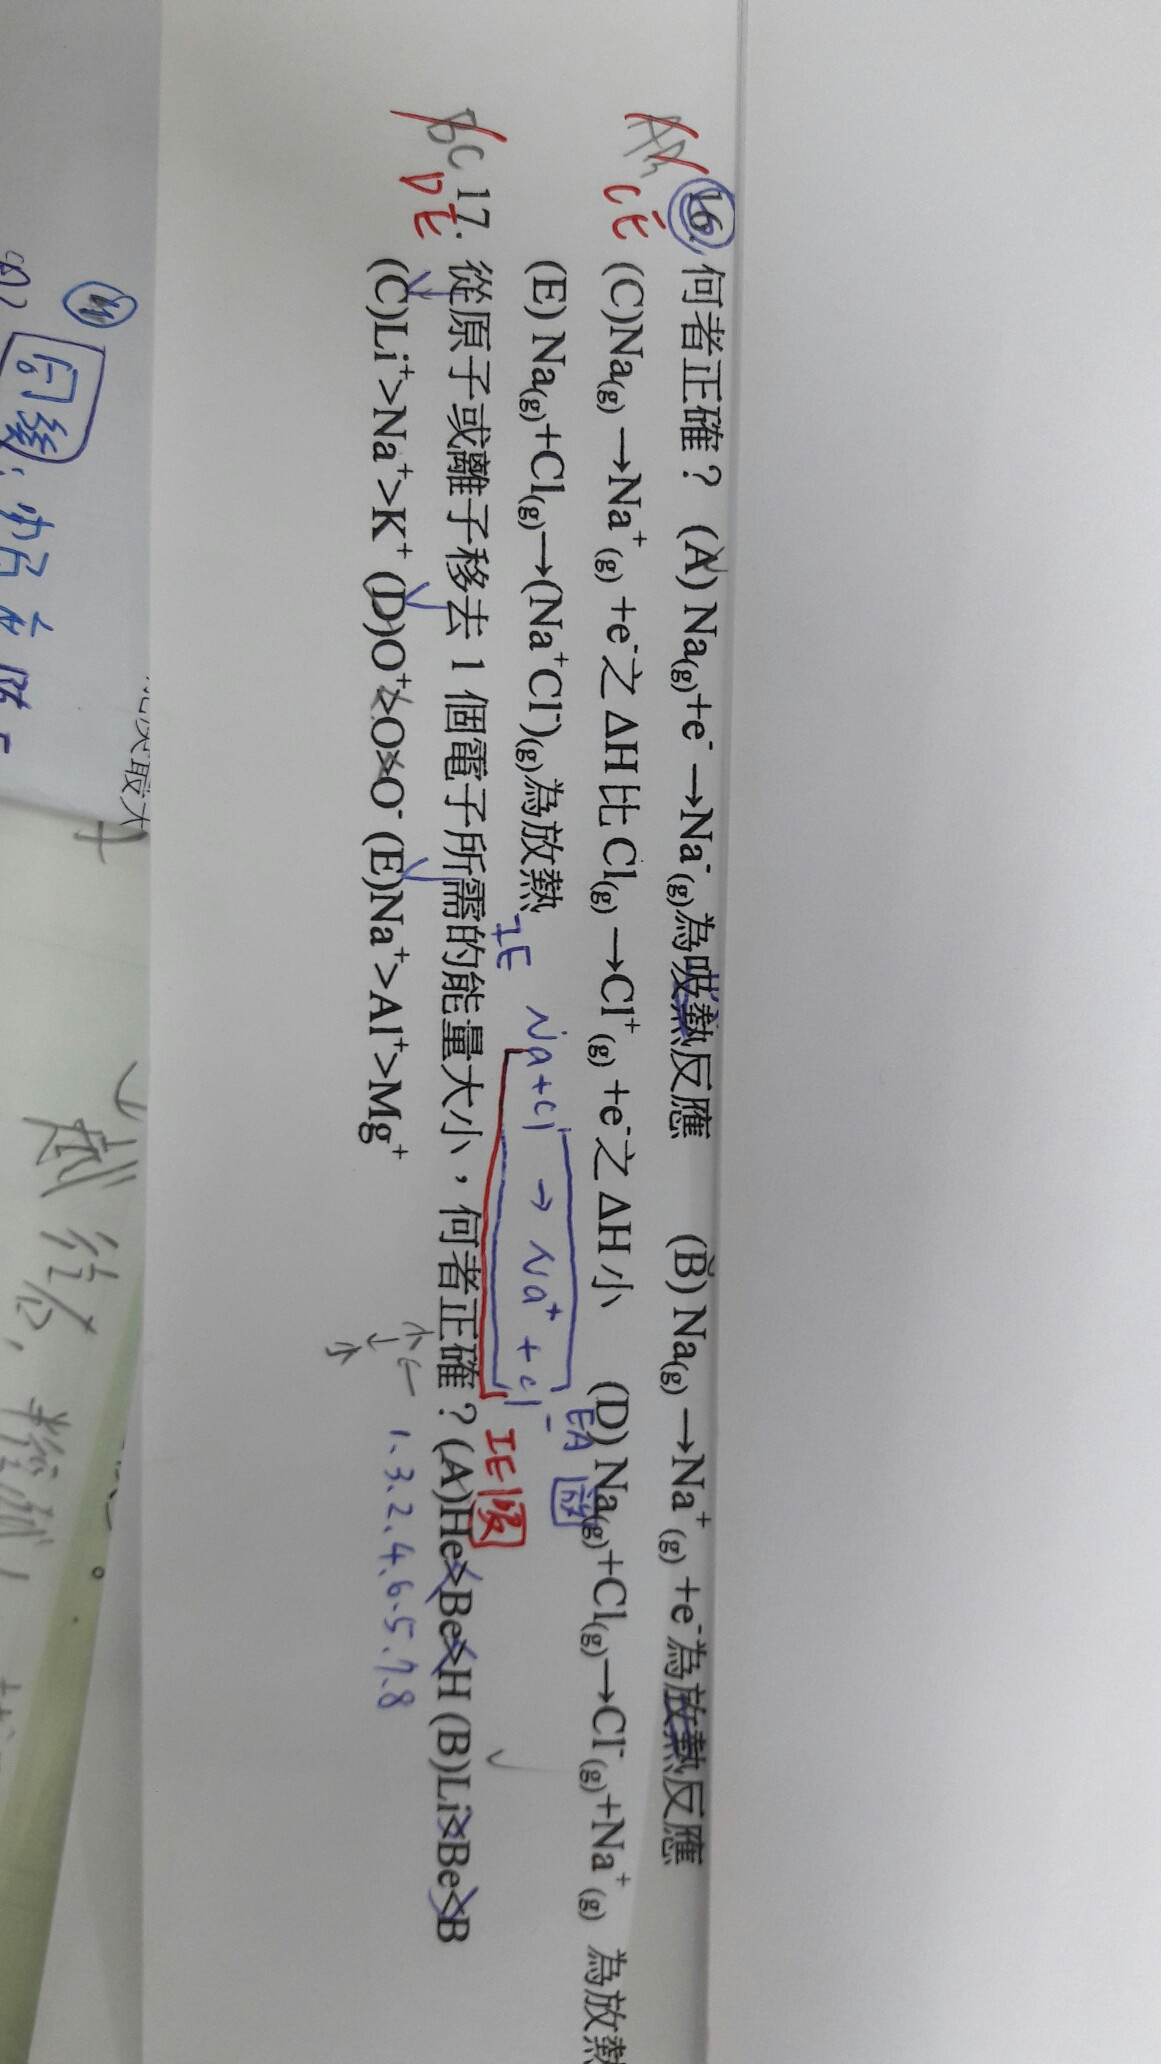 AB
CE
16. 何者正確？ (A) Na(g)+e⁻ →Na⁻(g)為吸熱反應 (B) Na(g) →Na⁺(g) +e⁻為放熱反應
(C)Na(g) →Na⁺(g) +e⁻之 ΔH 比 Cl(g) →Cl⁺(g) +e⁻之 ΔH 小 (D) Na(g)+Cl(g)→Cl⁻(g)+Na⁺(g) 為放熱
(E) Na(g)+Cl(g)→(Na⁺Cl⁻)(g)為放熱
EA 放
Na+Cl → Na⁺ + Cl⁻
IE
IE 吸
BC
DE
17. 從原子或離子移去 1 個電子所需的能量大小，何者正確？(A)He>Be>H (B)Li>Be<B
(C)Li⁺>Na⁺>K⁺ (D)O⁺>O>O⁻ (E)Na⁺>Al⁺>Mg⁺
1、3、2、4、6、5、7、8
小
最大